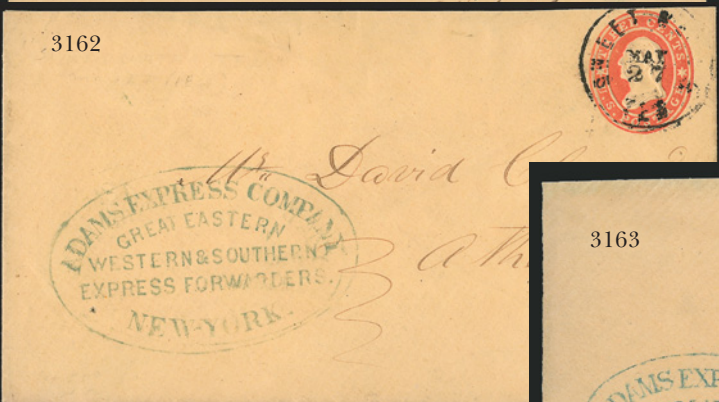 3162
SWEET
MAY
27
CENTS
Wm David
ADAMS EXPRESS COMPANY
GREAT EASTERN
WESTERN & SOUTHERN
EXPRESS FORWARDERS.
NEW-YORK.
3163
ADAMS EXP